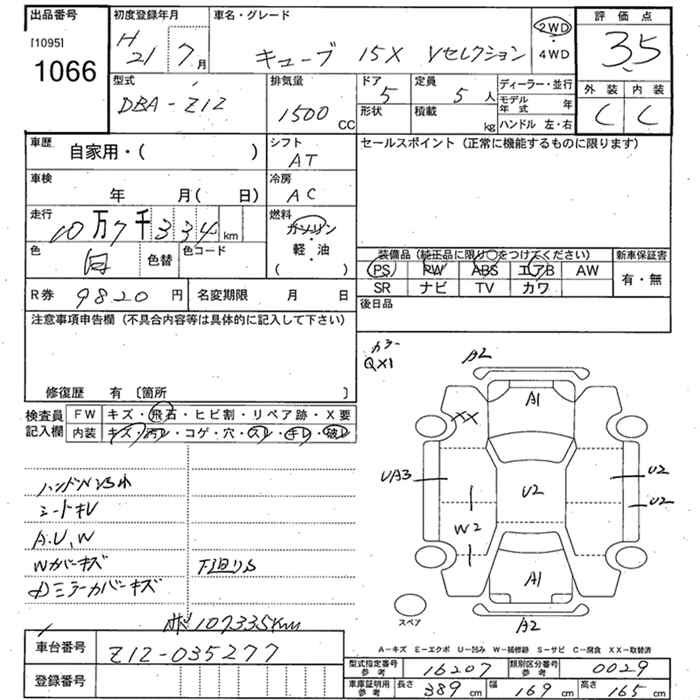 出品番号
[1095]
1066
初度登録年月
H 21 7月
車名・グレード
キューブ 15X Vセレクション
2WD
・
4WD
評価点
3.5
外装 内装
C C
型式
DBA-Z12
排気量
1500 CC
ドア 5
形状
定員 5 人
積載 kg
ディーラー・並行
モデル年式 年
ハンドル 左・右
車歴
自家用・( )
シフト
AT
車検
年 月( 日)
冷房
AC
走行
10万7千334 km
燃料
ガソリン
・
軽・油
( )
色 白 色替
色コード
R券 9820 円 名変期限 月 日
セールスポイント(正常に機能するものに限ります)
装備品(純正品に限り○をつけてください)
PS PW ABS エアB AW
SR ナビ TV カワ
新車保証書
有・無
後日品
注意事項申告欄(不具合内容等は具体的に記入して下さい)
修復歴 有〔箇所 〕
検査員記入欄
FW キズ・飛石・ヒビ割・リペア跡・X要
内装 キズ・汚レ・コゲ・穴・スレ・キレ・破レ
シートキレ
A.U.W
Wカバーキズ
Dミラーカバーキズ
下廻りS
107335km
カラー
QX1
A2
A1
XX
UA3
U2
U2
U2
W2
A1
A2
スペア
A-キズ E-エクボ U-凹み W-補修跡 S-サビ C-腐食 XX-取替済
車台番号 Z12-035277
登録番号
型式指定番号 参考 16207 類別区分番号 参考 0029
車庫証明用 参考 長さ 389 cm 幅 169 cm 高さ 165 cm